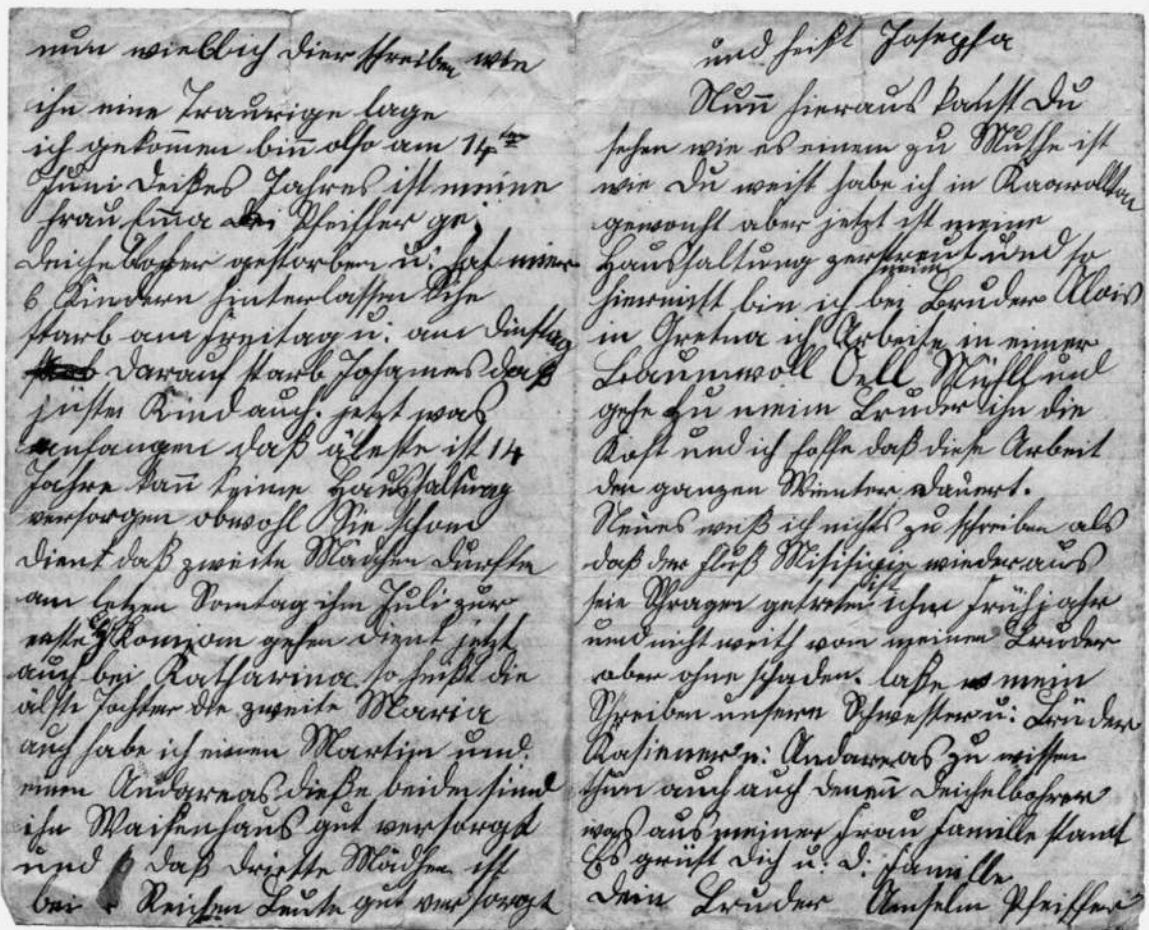 nun will ich Dier schreiben wie
ihn eine Traurige lage
ich gekommen binn also am 14ten
Juni dießes Jahres ist meine
Frau Emma Pfeiffer ge:
Deichelbohrer gestorben u: hat miner
6 Kindern hinterlassen Sihe
starb am Freitag u: am Dinstag
darauf starb Johannes daß
jüste Kind auch. jetzt was
anfangen daß äleste ist 14
Jahre kann keine Haushaltung
versorgen obwohl Sie schon
dient daß zweite Mädchen durfte
am letzen Sontag ihm Juli zur
erste hl Komjon gehen dient jetzt
auch bei Katharina so heißt die
älste Tochter die zweite Maria
auch habe ich einen Martin und
einen Andareas dieße beiden sind
ihn Waisenhaus gut versorgt
und daß driette Mädhen ist
bei Reichen Leute gut versorgt
und heißt Josepha
Nunn hieraus kanst Du
sehen wie es einem zu Muthe ist
wie Du weist habe ich in Kaarollton
gewonht aber jetzt ist meine
Haushaltung zerstreut und so
hiermitt bin ich bei meim Bruder Alois
in Gretna ich Arbeite in einner
Baumwoll Oell Mühlle und
gehe zu meim Bruder ihn die
Kost und ich hoffe daß diese Arbeit
den ganzen Wienter dauert.
Neues weiß ich nichts zu schreiben als
daß der Fluß Misisipie wieder aus
seie Schragen getreten ist ihm Frühjahr
und nicht weith von meinem Bruder
aber ohne schaden. laße mein
Schreiben unsere Schwester u: Brüder
Kasiemer u: Andareas zu wissen
thun auch auch denenn Deichelbohrer
was aus meiner Frau Famille stamt
Es grüst Dich u. D: Famille
Dein Bruder Anselm Pfeiffer